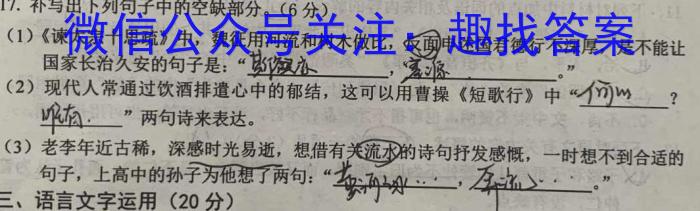 17. 补写出下列句子中的空缺部分。(6分)
微信公众号关注：趣找答案
(1)《谏太宗十思疏》中，魏征用河流和树木做比，反面申述国君德行不深厚，是不能让
国家长治久安的句子是：“，塞源。”
(2) 现代人常通过饮酒排遣心中的郁结，这可以用曹操《短歌行》中“何以？
唯有”两句诗来表达。
(3) 老李年近古稀，深感时光易逝，想借有关流水的诗句抒发感慨，一时想不到合适的
句子，上高中的孙子为他想了两句：“黄河之水…，奔流…。”
三、语言文字运用（20分）